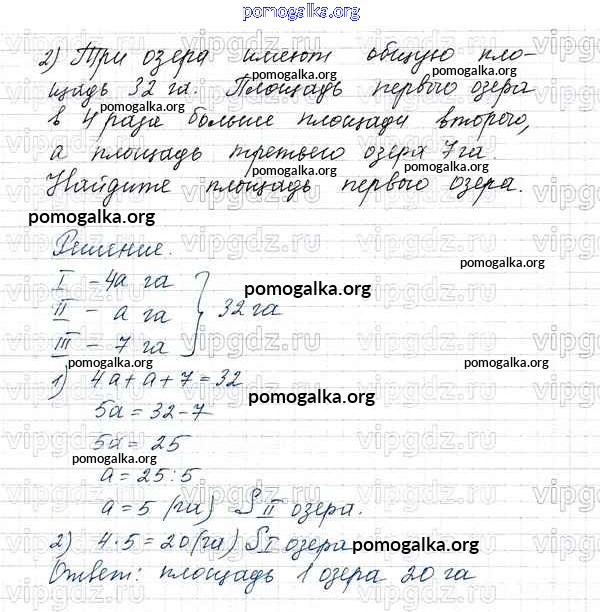 pomogalka.org
2) Три озера имеют общую пло-
щадь 32 га. Площадь первого озера
в 4 раза больше площади второго,
а площадь третьего озера 7 га.
Найдите площадь первого озера.
pomogalka.org
Решение.
I - 4а га
II - а га } 32 га
III - 7 га
1) 4а + а + 7 = 32
5а = 32 - 7
5а = 25
а = 25 : 5
а = 5 (га) S II озера.
2) 4 · 5 = 20 (га) S I озера
Ответ: площадь 1 озера 20 га